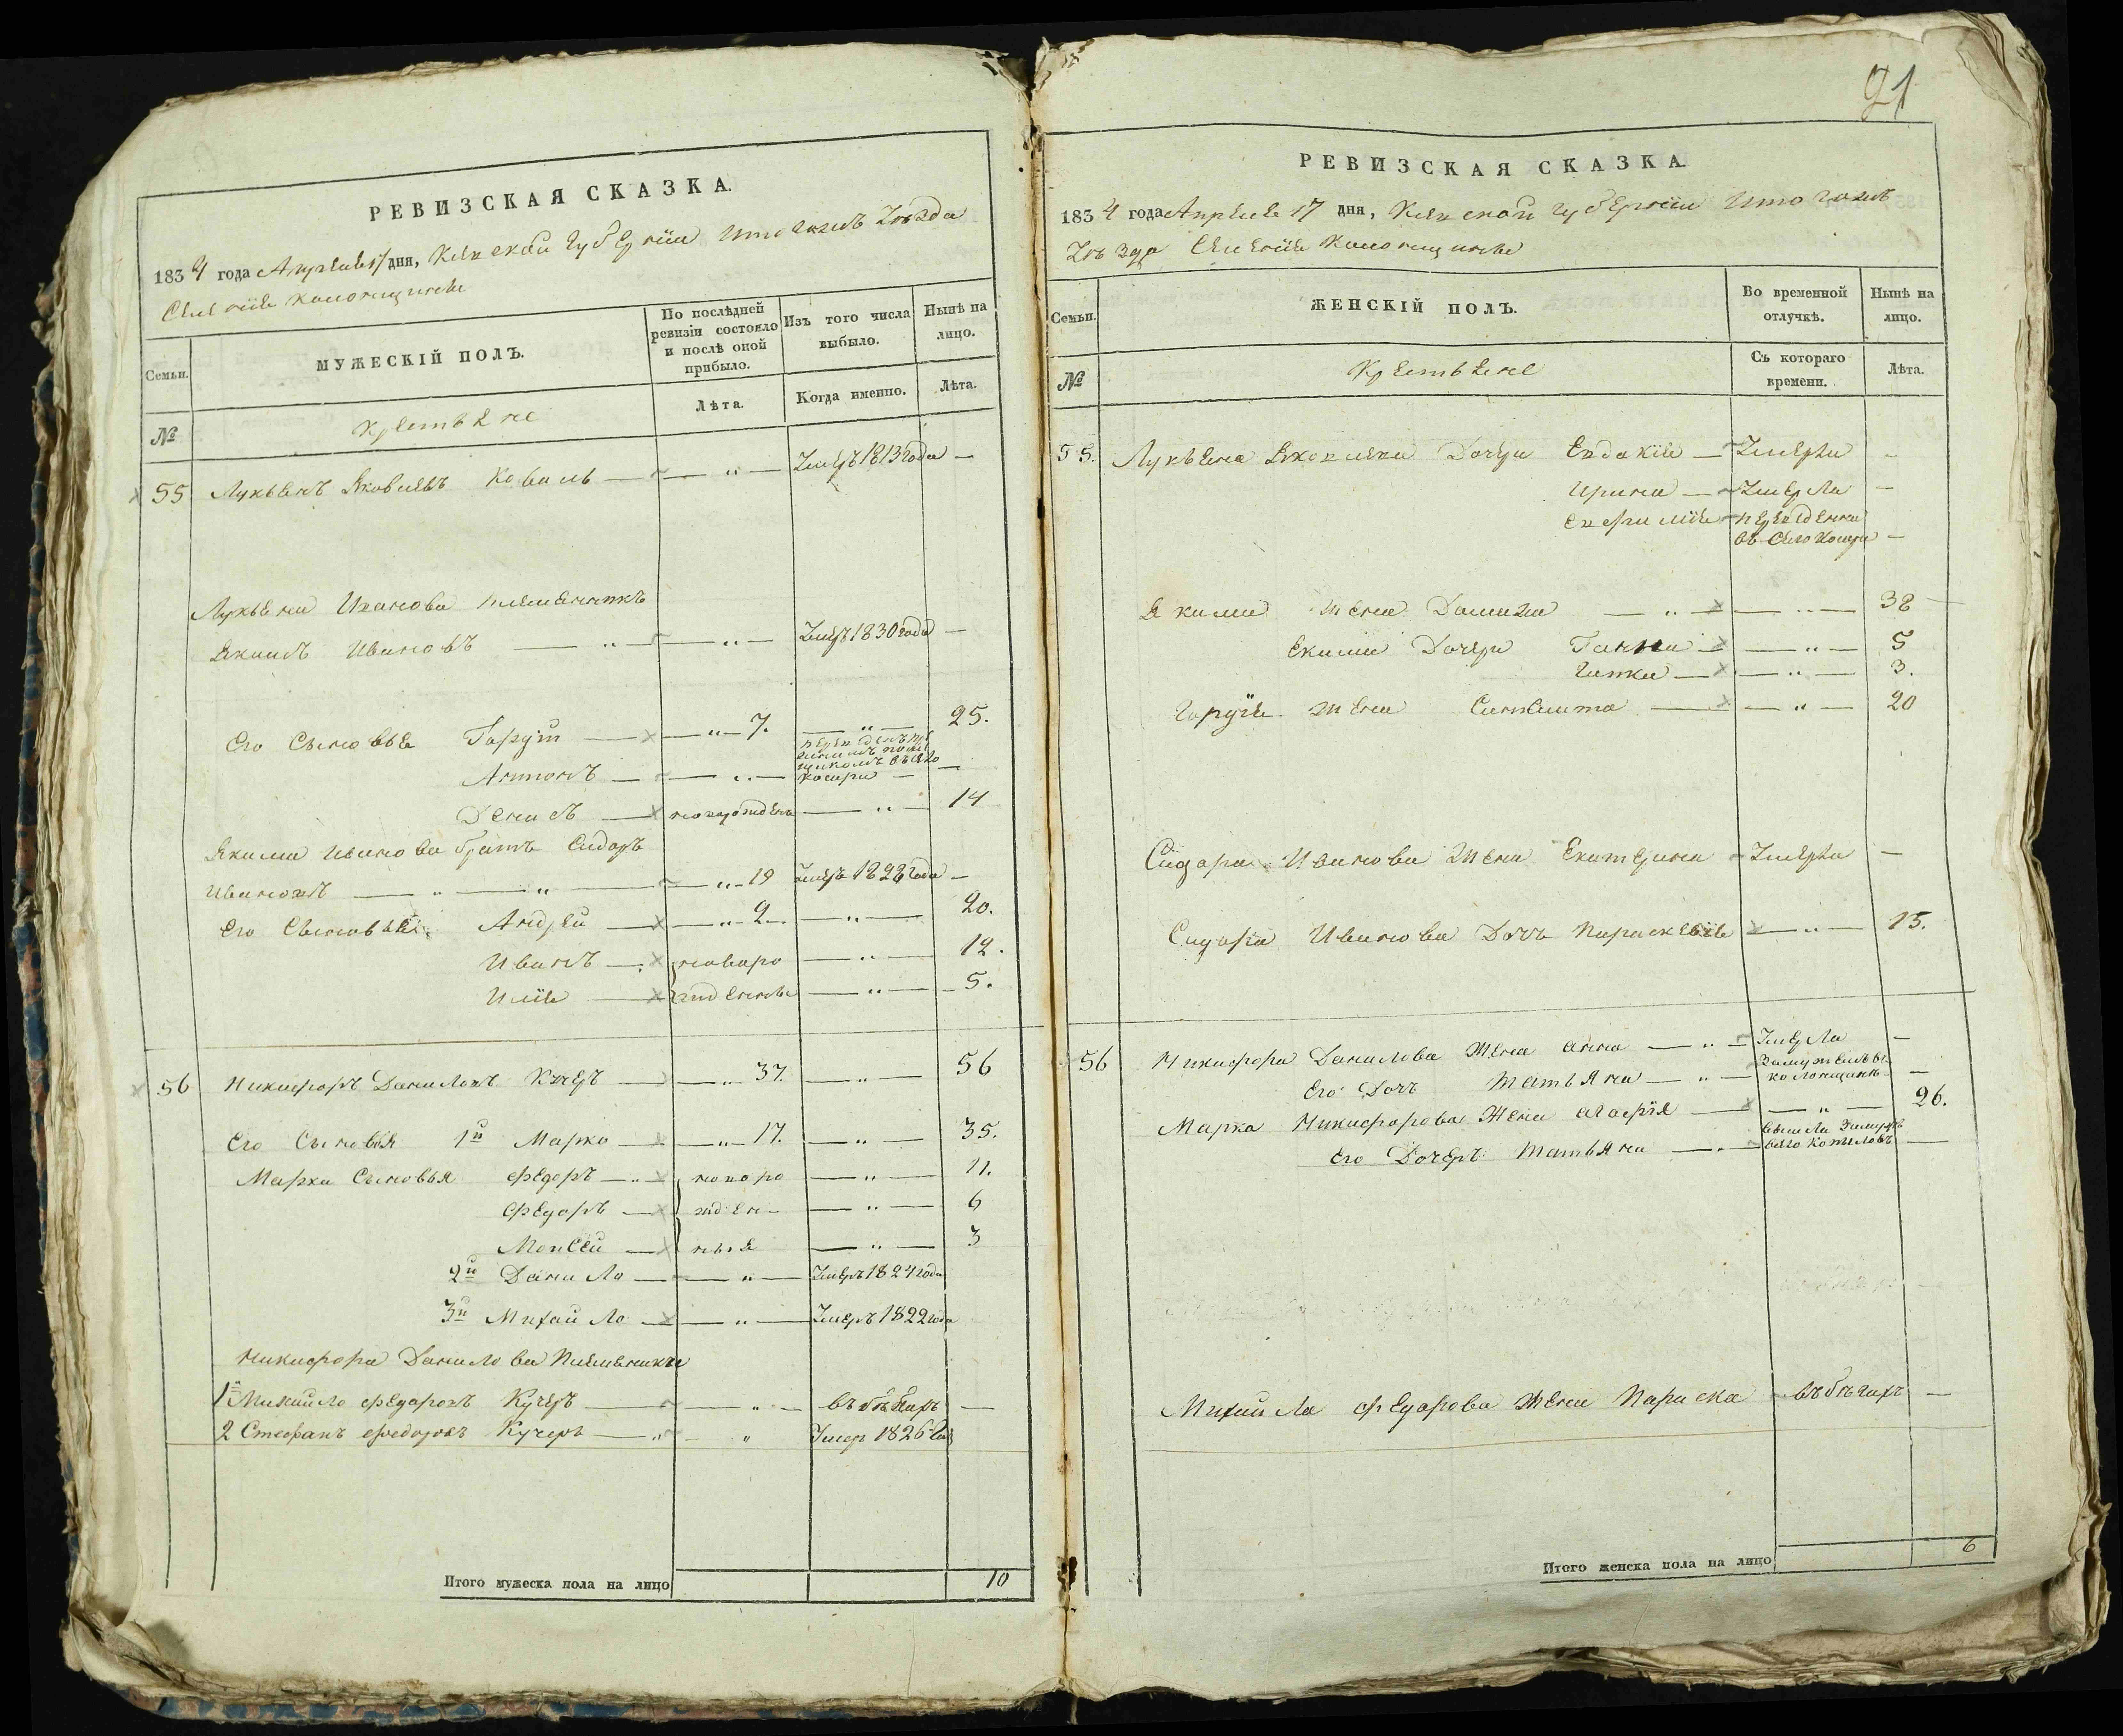 РЕВИЗСКАЯ СКАЗКА.
1834 года Апреля 17 дня, Киевской губернии уезда
Селения
Семьи.
МУЖЕСКІЙ ПОЛЪ.
По послѣдней ревизіи состояло и послѣ оной прибыло.
Изъ того числа выбыло.
Нынѣ на лицо.
№
Крестьяне
Лѣта.
Когда именно.
Лѣта.
55 Лукьянъ Яковлевъ Коваль — " — Умеръ 1813 года —
Лукьяна Иванова племянникъ
Якимъ Ивановъ — " — " — Умеръ 1830 года —
Его Сыновья — " — 7. — " — 25.
Антонъ — " —
Денисъ — новорожденъ — " — 14
Якима Иванова братъ Сидоръ
Ивановъ — " — " — " — 19 умеръ 1828 года —
Его Сыновья Андрей — " — 2 — " — 20.
Иванъ — новоро — " — 12.
Илія — жденные — " — 5.
56 Никифоръ Даниловъ Кучеръ — " — 37. — " — 56
Его Сыновья 1й Марко — " — 17. — " — 35.
Марка Сыновья Федоръ — " — новоро — " — 11.
Федоръ — жден — " — 6
Моисей — ныя — " — 3
2й Данило — " — Умеръ 1824 года
3й Михайло — " — Умеръ 1822 года
Никифора Данилова Племянники
1й Михайло Федоровъ Кучеръ — " — въ бѣгахъ —
2 Стефанъ Федоровъ Кучеръ — " — " Умеръ 1826
Итого мужеска пола на лицо 10
91
РЕВИЗСКАЯ СКАЗКА.
1834 года Апреля 17 дня, Киевской губернии
уезда Селения
Семьи.
ЖЕНСКІЙ ПОЛЪ.
Во временной отлучкѣ.
Нынѣ на лицо.
№
Крестьяне
Съ котораго времени.
Лѣта.
55. Лукьяна Яковлева Дочери Евдокия — Умерла —
Ирина — Умерла —
Ефимия — переведенна
въ Село —
Якима жена Домаха — " — " — 38
Якима Дочери Ганна — " — 5
Гапка — " — 3.
жена — " — 20
Сидора Иванова Жена Екатерина — Умерла —
Сидора Иванова Дочь Параскевия — " — 15.
56 Никифора Данилова Жена Анна — " — Умерла —
Его Дочь Татьяна — " — Замужемъ —
Марка Никифорова Жена Агафия — " — 26.
Его Дочерь Татьяна — " — вышла Замужъ
Михайла Федорова Жена Параска — въ бѣгахъ —
Итого женска пола на лицо 6